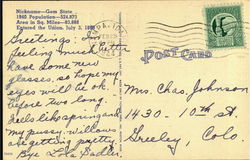 Nickname—Gem State
1940 Population—524,873
Area in Sq. Miles—83,888
Entered the Union, July 3, 1890
Greetings:
feeling much better
have some new
glasses, so hope my
eyes will be ok
before two long.
Feels like spring and
my pussy willows
are getting pretty
Bye Lola
POST CARD
Mrs. Chas. Johnson
1430 - 10th St.
Greeley, Colo